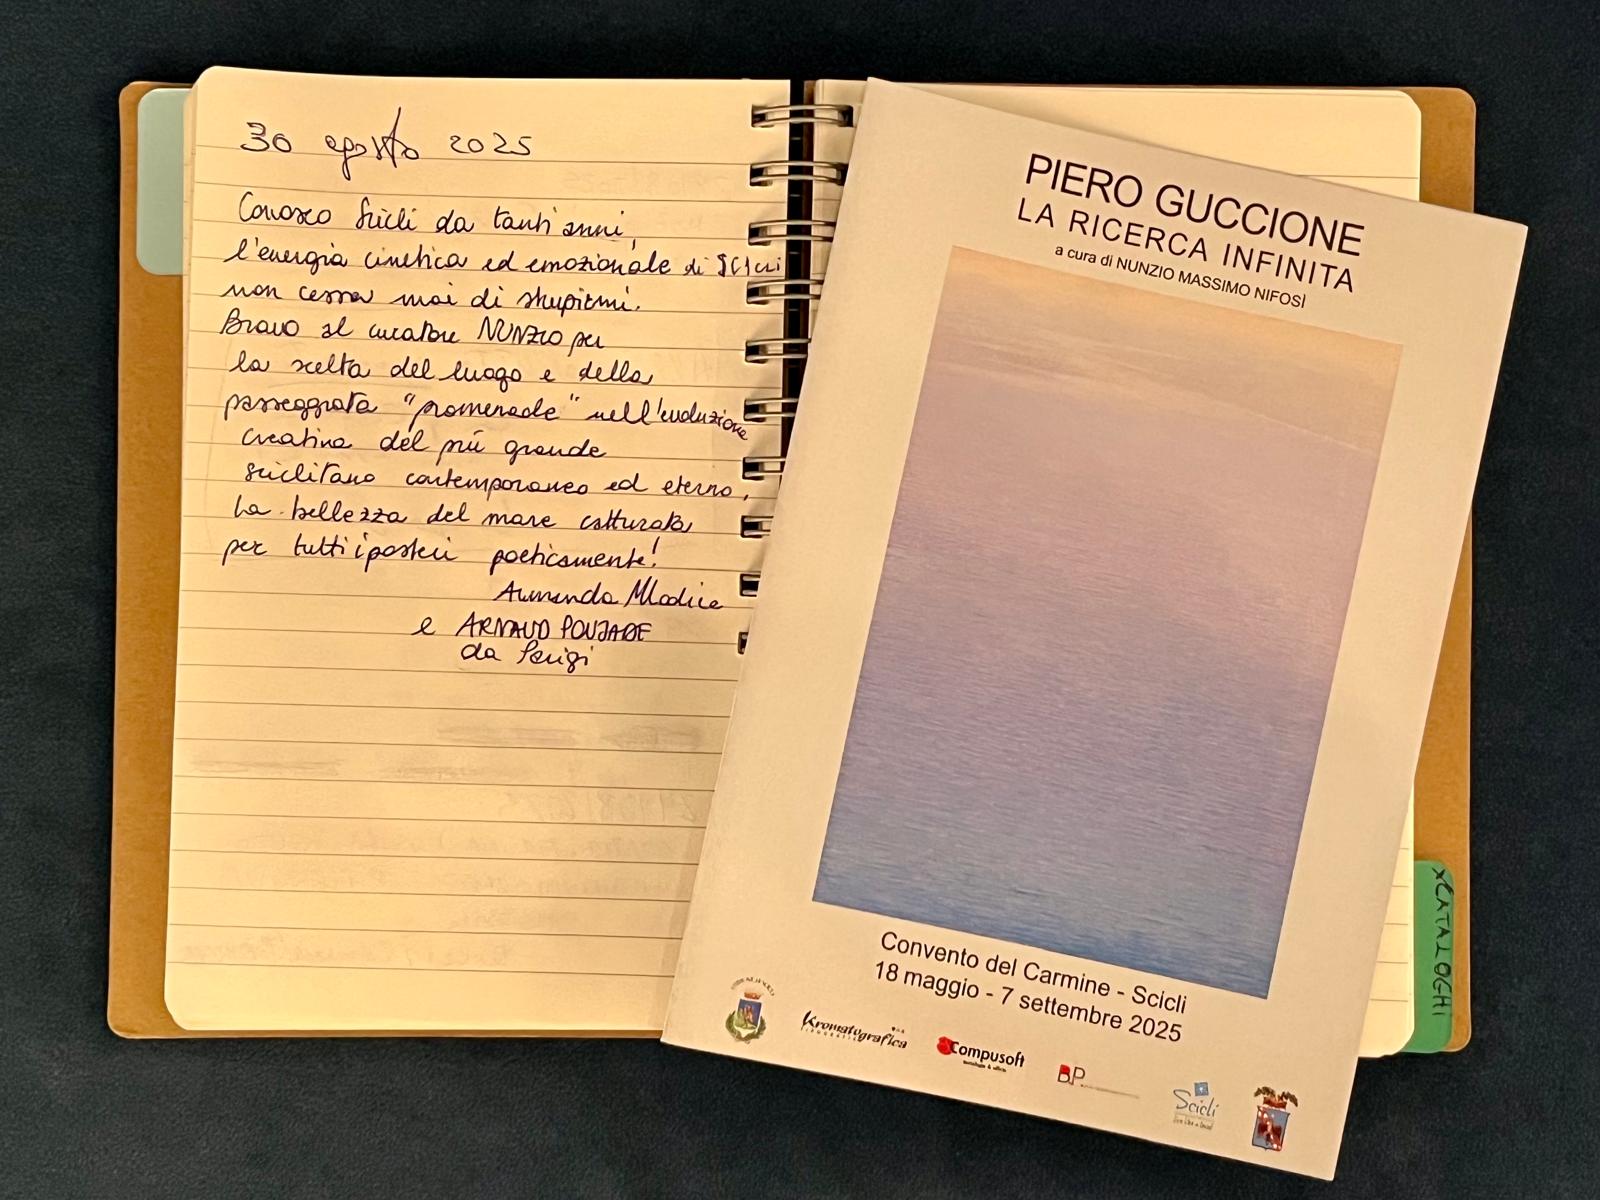 30 agosto 2025
Conosco Scicli da tanti anni,
l'energia cinetica ed emozionale di Scicli
non cessa mai di stupirmi.
Bravo al curatore NUNZIO per
la scelta del luogo e della
passeggiata "promenade" nell'evoluzione
creativa del più grande
sciclitano contemporaneo ed eterno,
la bellezza del mare catturata
per tutti i posteri poeticamente!
Modica
e ARNAUD POUJADE
da Parigi
PIERO GUCCIONE
LA RICERCA INFINITA
a cura di NUNZIO MASSIMO NIFOSÌ
Convento del Carmine - Scicli
18 maggio - 7 settembre 2025
Kromatografica
TIPOGRAFIA
Compusoft
BP
Scicli
CATALOGHI